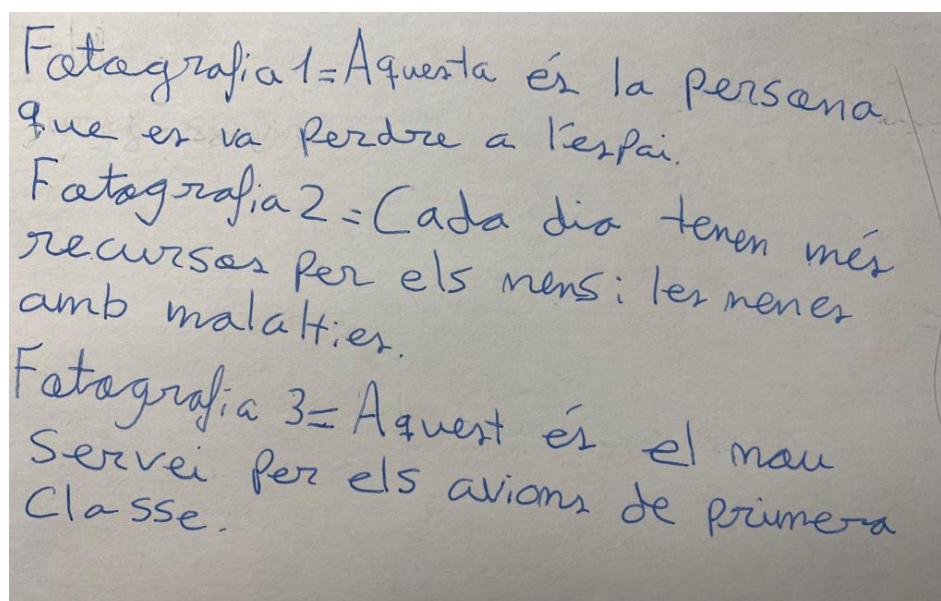 Fotografia 1= Aquesta és la persona
que es va perdre a l'espai.
Fotografia 2= Cada dia tenen més
recursos per els nens i les nenes
amb malalties.
Fotografia 3= Aquest és el nou
servei per els avions de primera
Classe.